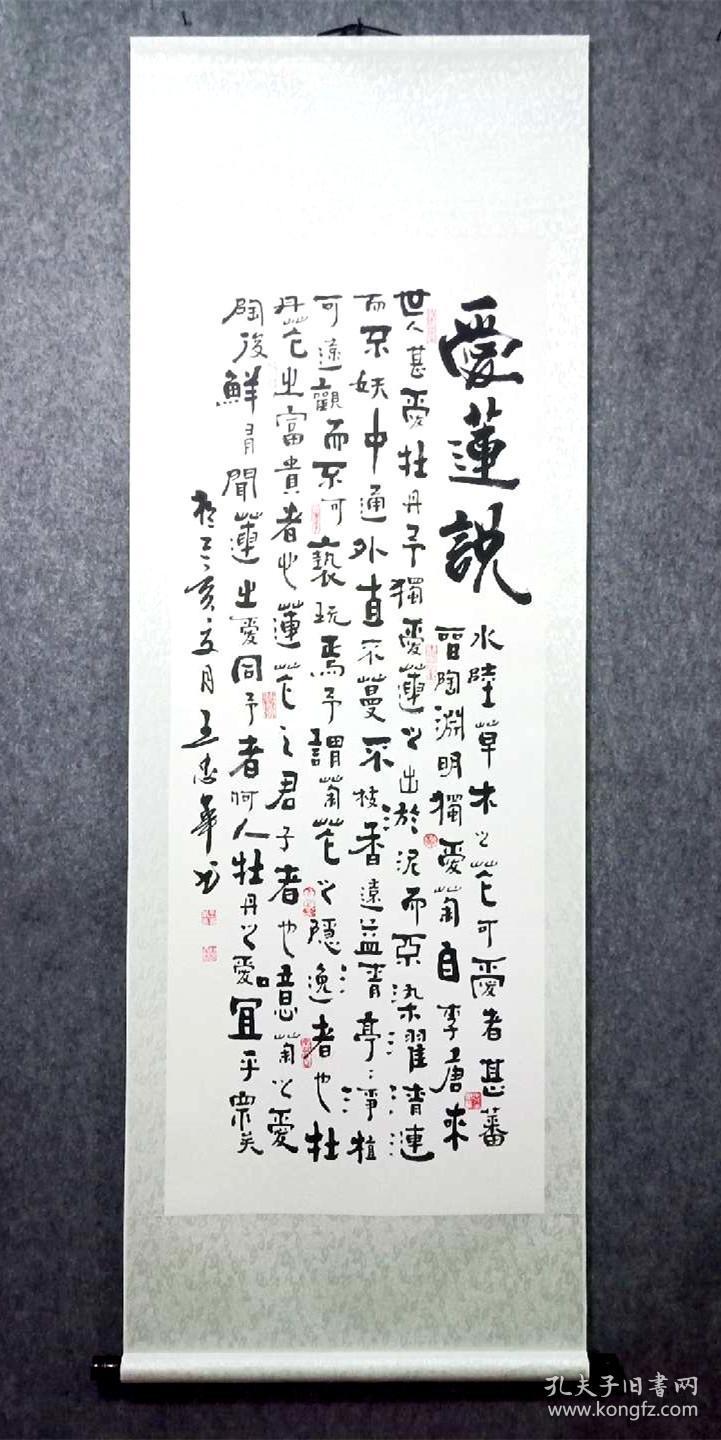 愛蓮説
水陸草木之芲可愛者甚蕃
晉陶淵明獨愛菊自李唐來
世人甚愛牡丹予獨愛蓮之出淤泥而不染濯清漣
而不妖中通外直不蔓不枝香遠益青亭〻淨植
可遠觀而不可褻玩焉予謂菊芲之隱逸者也牡
丹芲之富貴者也蓮芲之君子者也意菊之愛
陶後鮮有聞蓮之愛同予者何人牡丹之愛宜乎眾矣
己亥立月王忠華書
孔夫子旧書网
www.kongfz.com